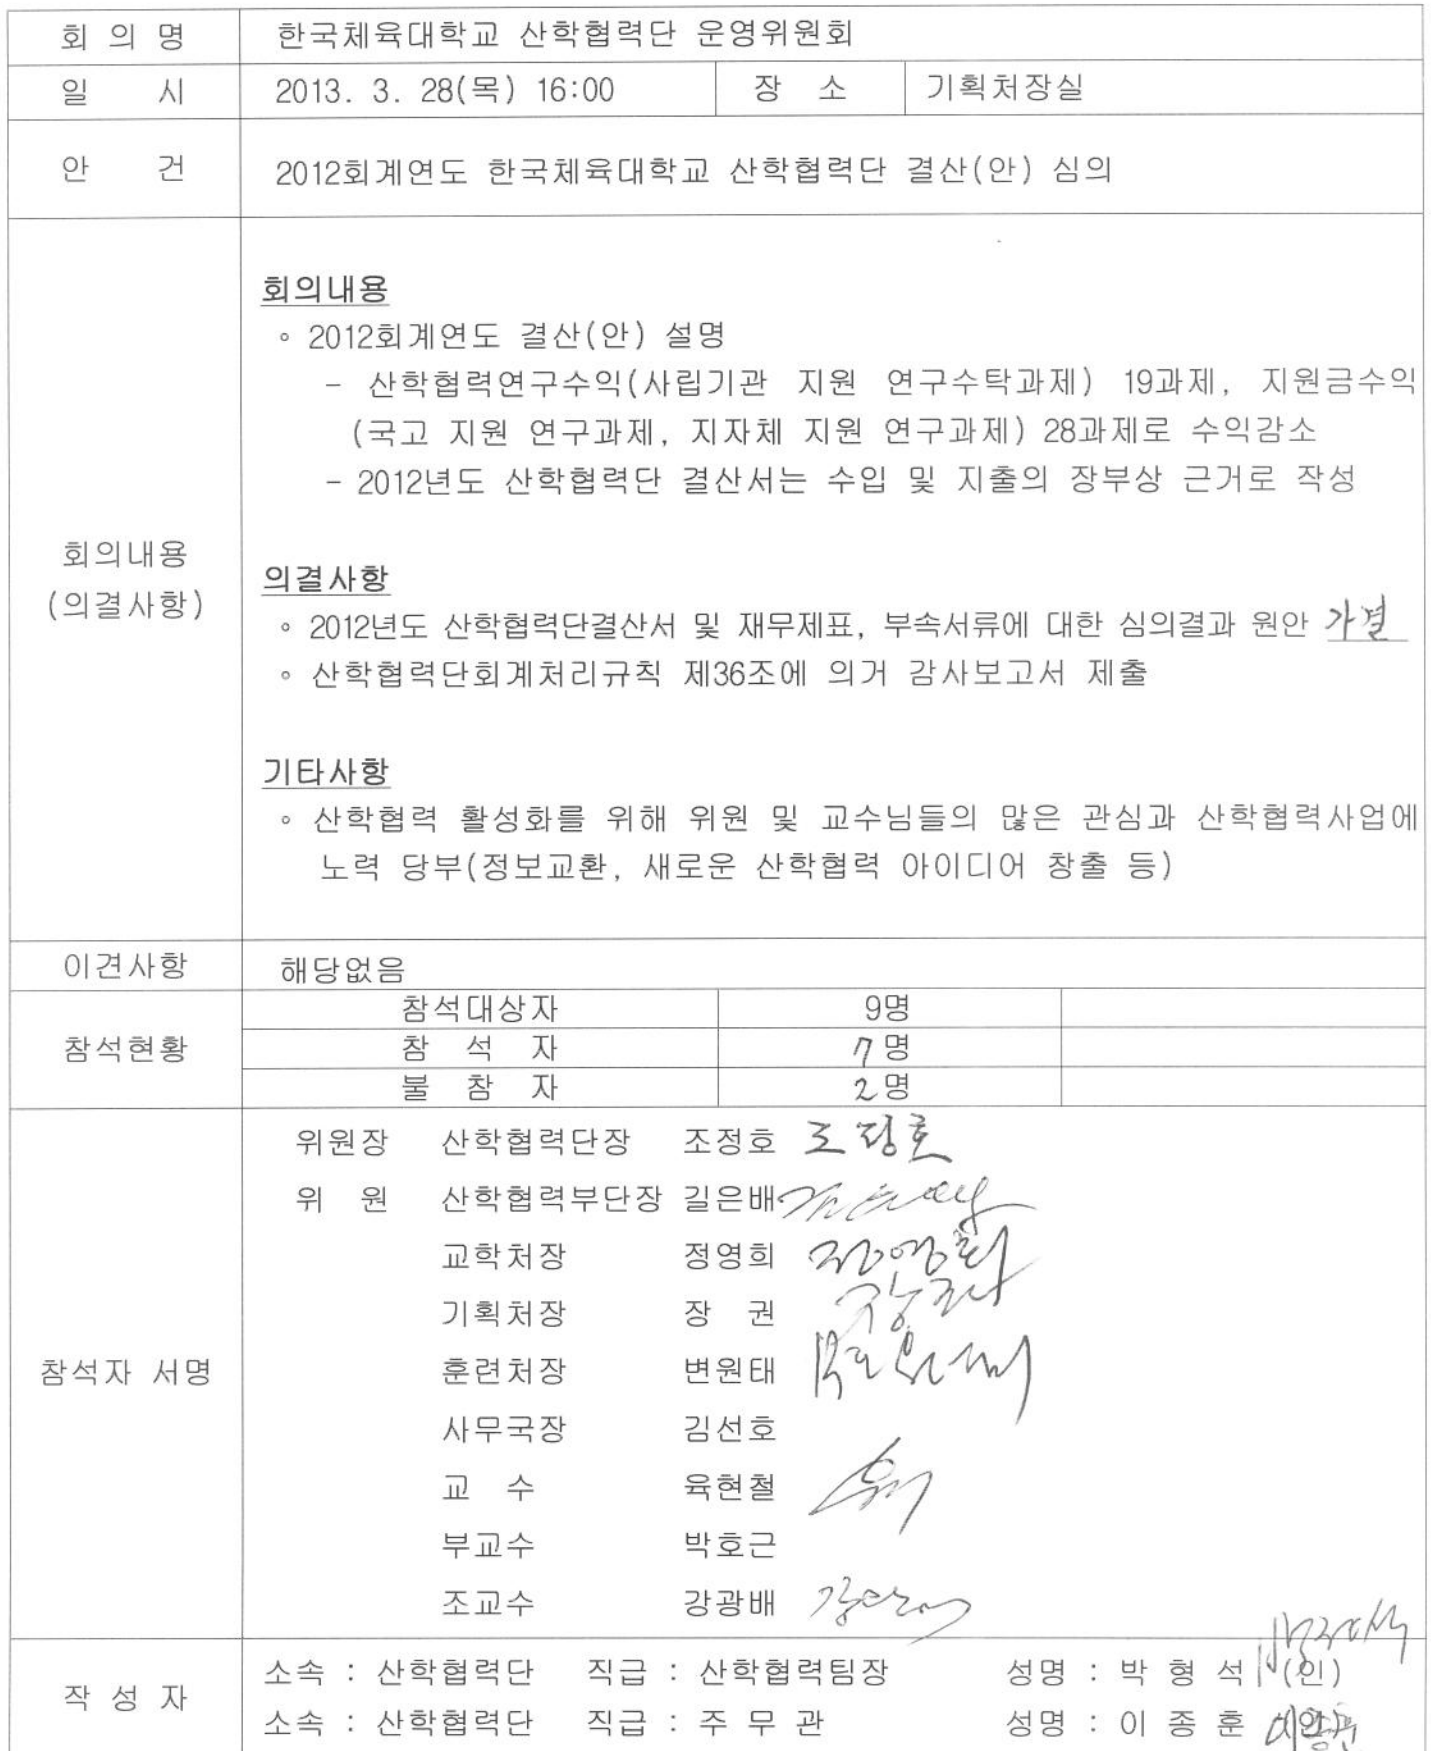 회 의 명 한국체육대학교 산학협력단 운영위원회
일 시 2013. 3. 28(목) 16:00 장 소 기획처장실
안 건 2012회계연도 한국체육대학교 산학협력단 결산(안) 심의
회의내용
(의결사항)
회의내용
◦ 2012회계연도 결산(안) 설명
- 산학협력연구수익(사립기관 지원 연구수탁과제) 19과제, 지원금수익
(국고 지원 연구과제, 지자체 지원 연구과제) 28과제로 수익감소
- 2012년도 산학협력단 결산서는 수입 및 지출의 장부상 근거로 작성
의결사항
◦ 2012년도 산학협력단결산서 및 재무제표, 부속서류에 대한 심의결과 원안 가결
◦ 산학협력단회계처리규칙 제36조에 의거 감사보고서 제출
기타사항
◦ 산학협력 활성화를 위해 위원 및 교수님들의 많은 관심과 산학협력사업에
노력 당부(정보교환, 새로운 산학협력 아이디어 창출 등)
이견사항 해당없음
참석현황
참석대상자 9명
참 석 자 7명
불 참 자 2명
참석자 서명
위원장 산학협력단장 조정호 조정호
위 원 산학협력부단장 길은배
교학처장 정영희 정영희
기획처장 장 권 장권
훈련처장 변원태 변원태
사무국장 김선호
교 수 육현철
부교수 박호근
조교수 강광배
작 성 자
소속 : 산학협력단 직급 : 산학협력팀장 성명 : 박 형 석 (인)
소속 : 산학협력단 직급 : 주 무 관 성명 : 이 종 훈 (인)